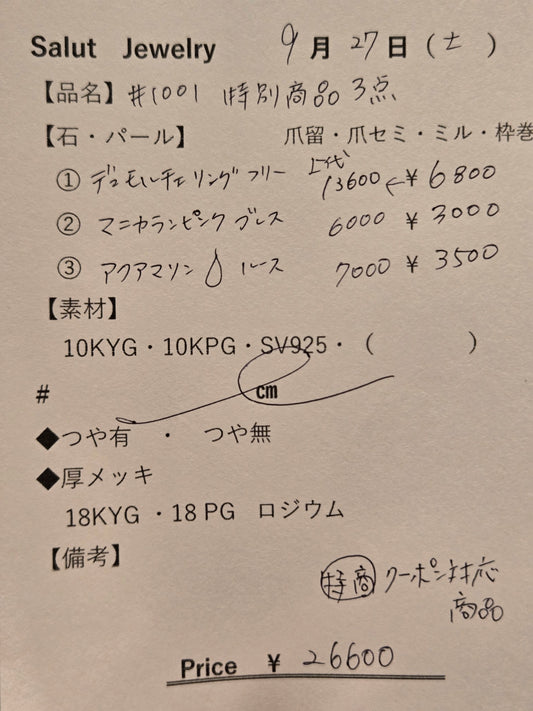 Salut Jewelry 9月27日(土 )
【品名】#1001 特別商品 3点
【石・パール】 爪留・爪セミ・ミル・枠巻
① デュモルチェ リング フリー 上代 13600 ← ¥ 6800
② マニカランピンク ブレス 6000 ¥ 3000
③ アクアマリン ルース 7000 ¥ 3500
【素材】
10KYG・10KPG・SV925・( )
# cm
◆つや有 ・ つや無
◆厚メッキ
18KYG ・18 PG ロジウム
【備考】
特商 クーポン対応
商品
Price ¥ 26600